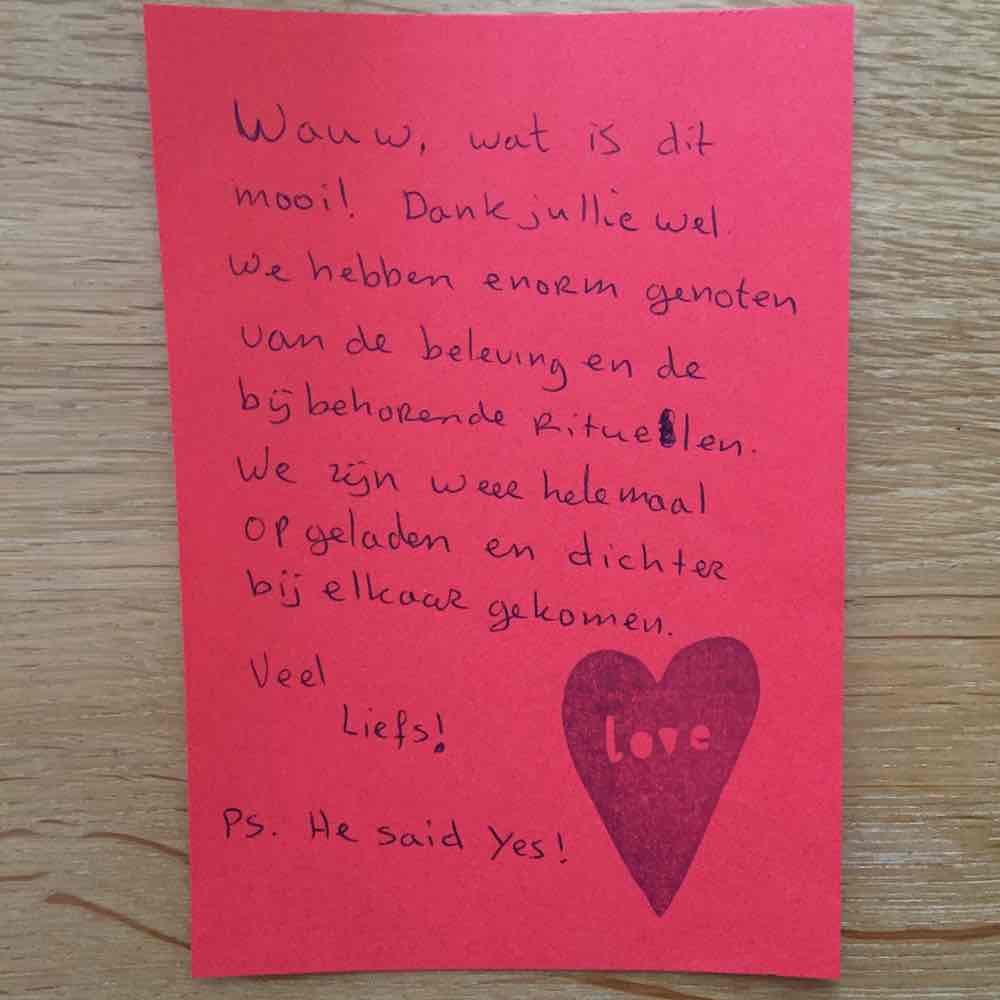 Wauw, wat is dit
mooi! Dank jullie wel.
We hebben enorm genoten
van de beleving en de
bijbehorende Rituelen.
We zijn weer helemaal
opgeladen en dichter
bij elkaar gekomen.
Veel
Liefs!
love
Ps. He said Yes!